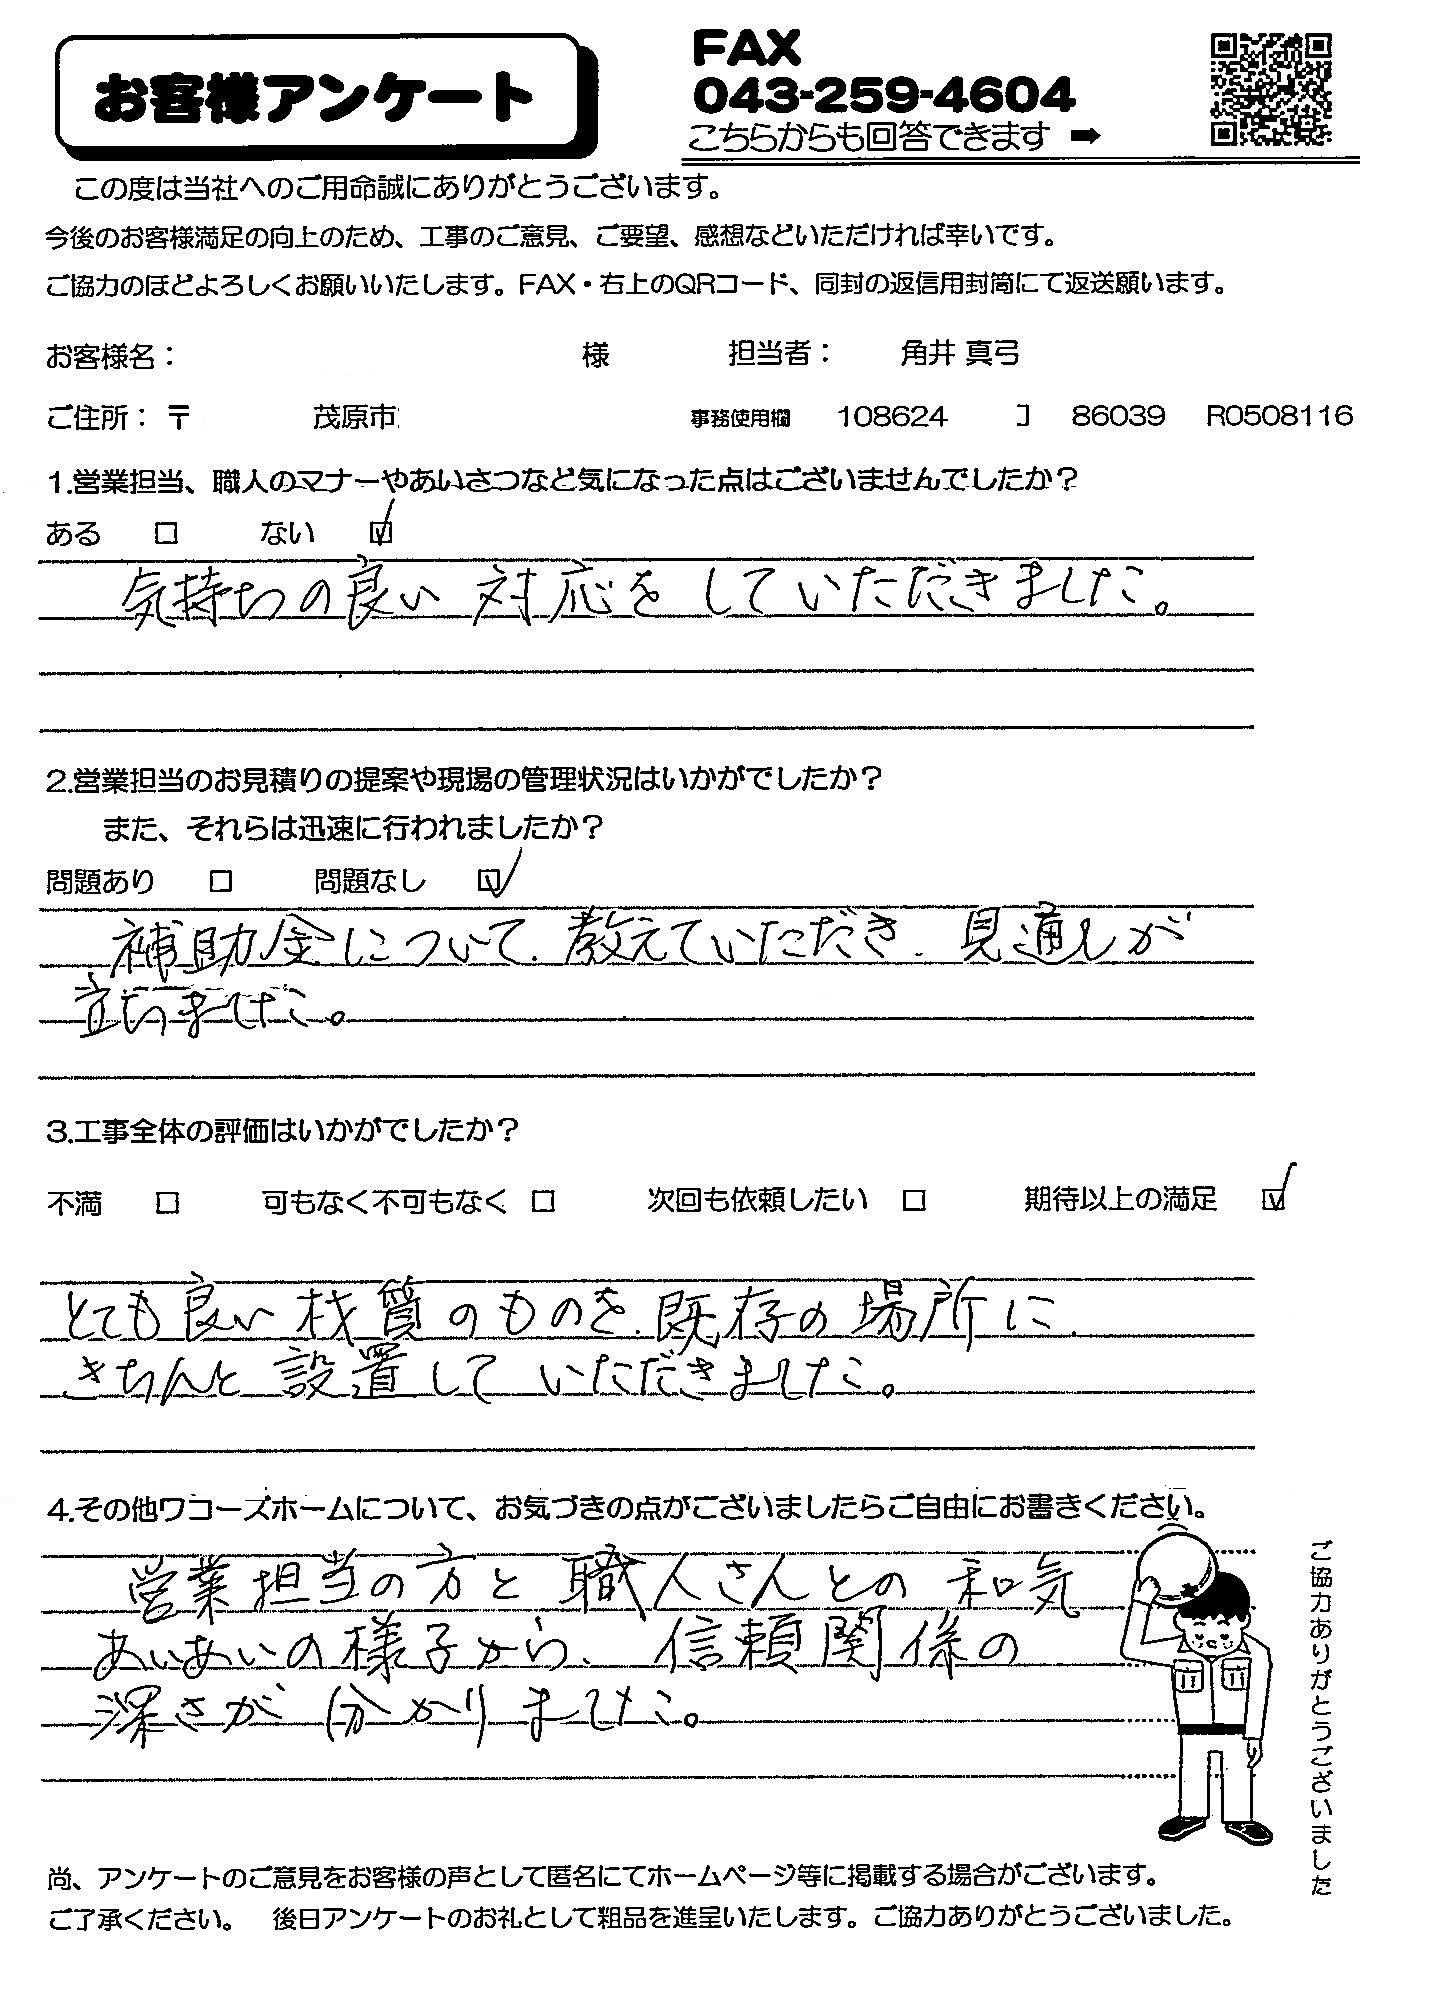 お客様アンケート
FAX
043-259-4604
こちらからも回答できます ➡
この度は当社へのご用命誠にありがとうございます。
今後のお客様満足の向上のため、工事のご意見、ご要望、感想などいただければ幸いです。
ご協力のほどよろしくお願いいたします。FAX・右上のQRコード、同封の返信用封筒にて返送願います。
お客様名： 様 担当者： 角井 真弓
ご住所：〒 茂原市 事務使用欄 108624 コ 86039 R0508116
1.営業担当、職人のマナーやあいさつなど気になった点はございませんでしたか？
ある □ ない ☑
気持ちの良い対応をしていただきました。
2.営業担当のお見積りの提案や現場の管理状況はいかがでしたか？
また、それらは迅速に行われましたか？
問題あり □ 問題なし ☑
補助金について、教えていただき、見通しが
立ちました。
3.工事全体の評価はいかがでしたか？
不満 □ 可もなく不可もなく □ 次回も依頼したい □ 期待以上の満足 ☑
とても良い材質のものを、既存の場所に、
きちんと設置していただきました。
4.その他ワコーズホームについて、お気づきの点がございましたらご自由にお書きください。
営業担当の方と職人さんとの和気
あいあいの様子から、信頼関係の
深さが分かりました。
ご協力ありがとうございました
尚、アンケートのご意見をお客様の声として匿名にてホームページ等に掲載する場合がございます。
ご了承ください。 後日アンケートのお礼として粗品を進呈いたします。ご協力ありがとうございました。